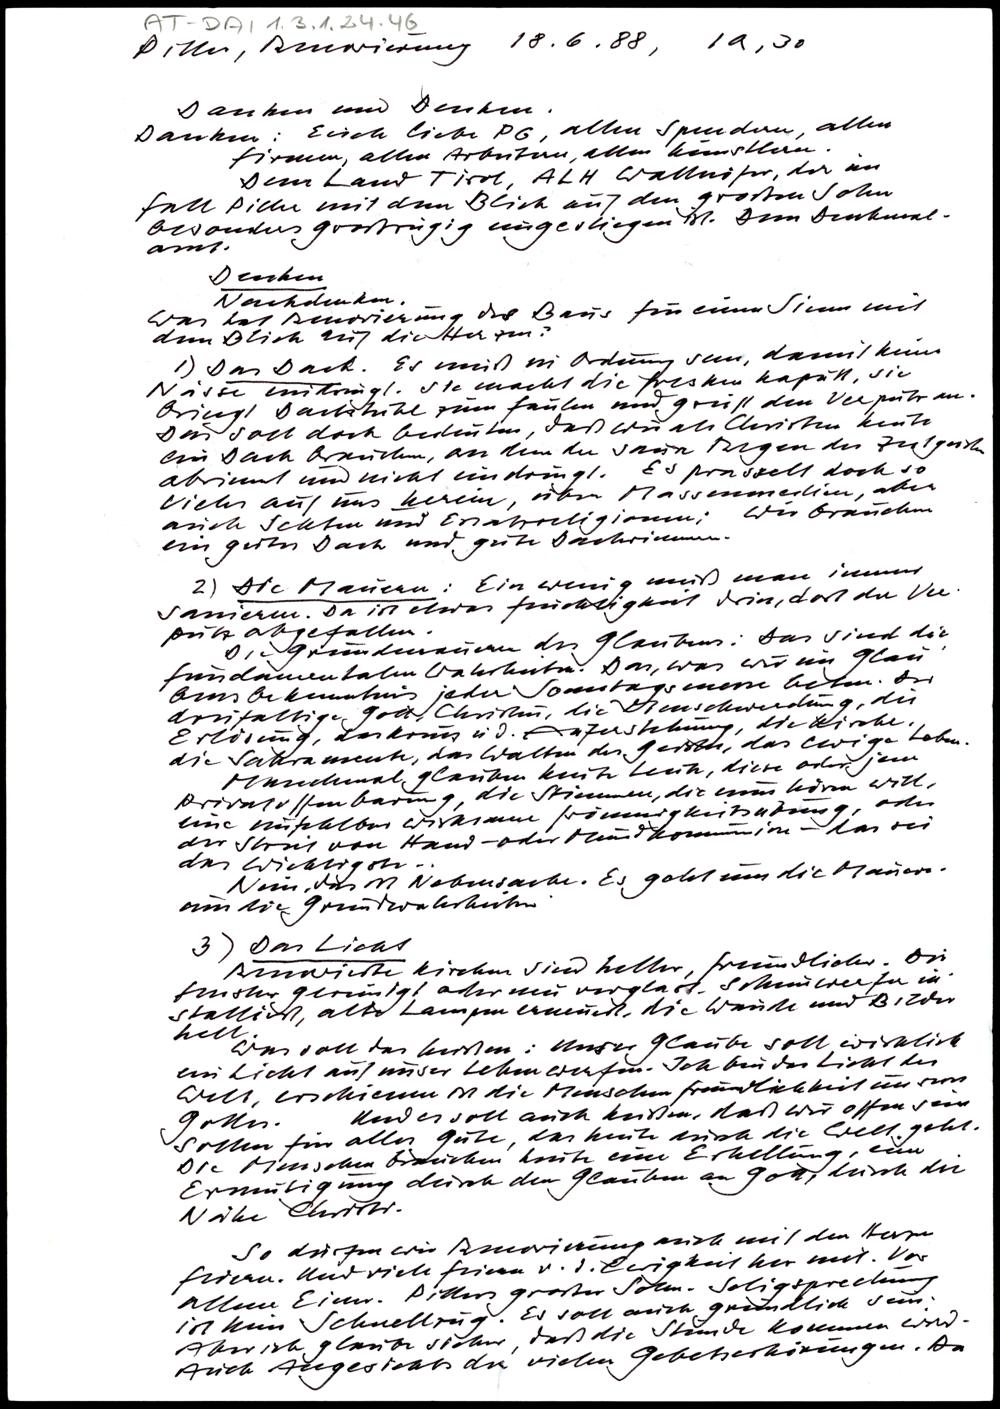 AT-DAI 1.3.1.24.46
Piller, Renovierung 18.6.88, 19,30
Danken und Denken.
Danken: Euch liebe PG, allen Spendern, allen
Firmen, allen Arbeitern, allen Künstlern.
Dem Land Tirol, ALH Wallnöfer, der im
Fall Piller mit dem Blick auf den großen Sohn
besonders großzügig eingestiegen ist. Dem Denkmal-
amt.
Denken
Nachdenken.
Was hat Renovierung des Baus für einen Sinn mit
dem Blick auf die Herzen?
1) Das Dach. Es muß in Ordnung sein, damit keine
Nässe eindringt. Sie macht die Fresken kaputt, sie
bringt Dachstühle zum Faulen und greift den Verputz an.
Das soll doch bedeuten, daß wir als Christen heute
ein Dach brauchen, an dem der saure Regen des Zeitgeistes
abrinnt und nicht eindringt. Es prasselt doch so
vieles auf uns herein, über Massenmedien, aber
auch Sekten und Ersatzreligionen; Wir brauchen
ein gutes Dach und gute Dachrinnen.
2) Die Mauern: Ein wenig muß man immer
sanieren. Da ist etwas Feuchtigkeit drin, dort der Ver-
putz abgefallen.
Die Grundmauern des Glaubens: Das sind die
fundamentalen Wahrheiten. Das, was wir im Glau-
bensbekenntnis jeder Sonntagsmesse beten. Der
dreifaltige Gott, Christus, die Menschwerdung, die
Erlösung, das Kreuz u.d. Auferstehung, die Kirche,
die Sakramente, das Walten des Geistes, das ewige Leben.
Manchmal glauben heute Leute, diese oder jene
Privatoffenbarung, die Stimmen, die man hören will,
eine unfehlbar wirksame Frömmigkeitsübung, oder
der Streit von Hand- oder Mundkommunion - das sei
das Wichtigste..
Nein, das ist Nebensache. Es geht um die Mauern.
um die Grundwahrheiten
3) Das Licht
Renovierte Kirchen sind heller, freundlicher. Die
Fenster gereinigt oder neu verglast. Scheinwerfer in-
stalliert, alte Lampen erneuert, die Wände und Bilder
hell.
Was soll das heißen: Unser Glaube soll wirklich
ein Licht auf unser Leben werfen. Ich bin das Licht der
Welt, erschienen ist die Menschenfreundlichkeit unseres
Gottes. Und es soll auch heißen, daß wir offen sein
sollen für alles Gute, das heute durch die Welt geht.
Die Menschen brauchen heute eine Erhellung, eine
Ermutigung durch den Glauben an Gott, durch die
Nähe Christi.
So dürfen wir Renovierung auch mit den Herzen
feiern. Und viele feiern v. d. Ewigkeit her mit. Vor
allem Einer. Pillers großer Sohn. Seligsprechung
ist kein Schnellzug. Es soll auch gründlich sein.
Aber ich glaube sicher, daß die Stunde kommen wird.
Auch Angesichts der vielen Gebetserhörungen. Da